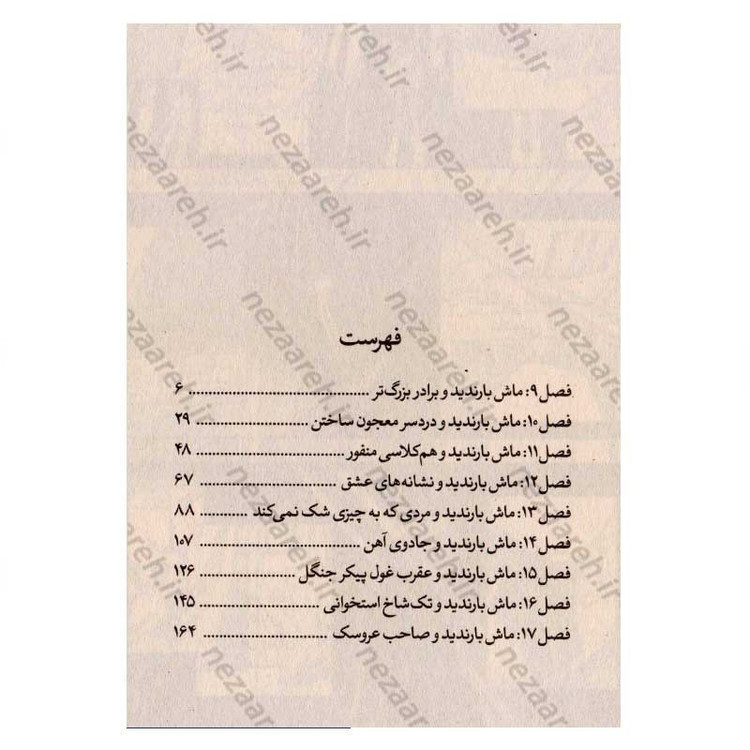 فهرست
فصل ۹: ماش بارندید و برادر بزرگ‌تر ........................................ ۶
فصل ۱۰: ماش بارندید و دردسر معجون ساختن ......................... ۲۹
فصل ۱۱: ماش بارندید و هم‌کلاسی منفور ................................. ۴۸
فصل ۱۲: ماش بارندید و نشانه‌های عشق ................................. ۶۷
فصل ۱۳: ماش بارندید و مردی که به چیزی شک نمی‌کند ............ ۸۸
فصل ۱۴: ماش بارندید و جادوی آهن ..................................... ۱۰۷
فصل ۱۵: ماش بارندید و عقرب غول پیکر جنگل ...................... ۱۲۶
فصل ۱۶: ماش بارندید و تک‌شاخ استخوانی ........................... ۱۴۵
فصل ۱۷: ماش بارندید و صاحب عروسک ............................ ۱۶۴
nezaareh.ir